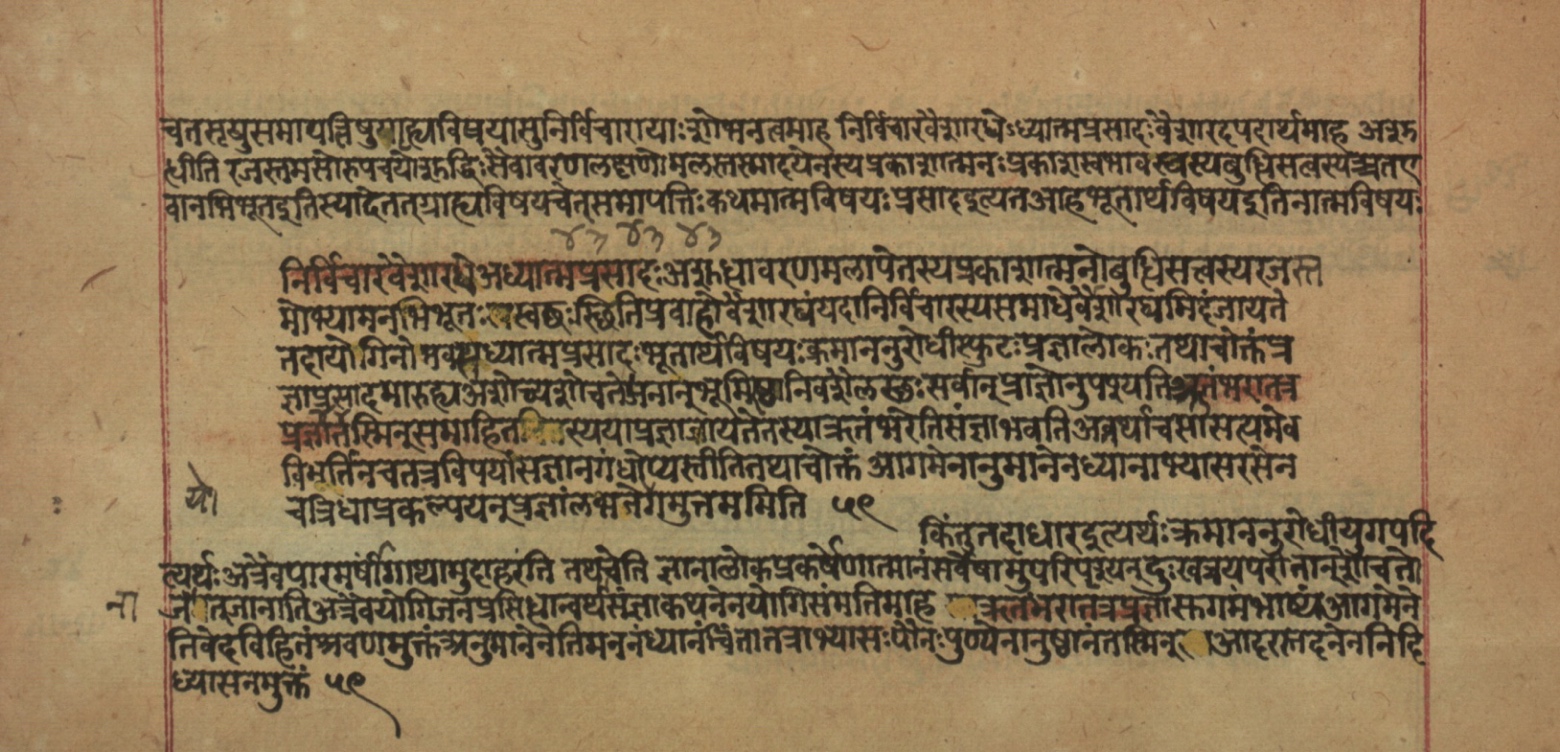 चतसृषुसमापत्तिषुग्राह्यविषयासुनिर्विचारायाःशोभनत्वमाह निर्विचारवैशारद्येऽध्यात्मप्रसादःवैशारदपदार्थमाह अशुद्
ध्धीति रजस्तमसोरुपचयोशुद्धिःसैवावरणलक्षणोमलस्तस्मादपेतस्यप्रकाशात्मनःप्रकाशस्वभावस्यबुध्धिसत्वस्य
वानभिभूतइतिस्यादेतत्ग्राह्यविषयचेत्समापत्तिःकथमात्मविषयःप्रसादइत्यतआहभूतार्थविषयइतिनात्मविषयः
निर्विचारवैशारद्येअध्यात्मप्रसादःअशुध्यावरणमलापेतस्यप्रकाशात्मनोबुध्धिसत्वस्यरजस्त
मोभ्यामनभिभूतःस्वच्छःस्थितिप्रवाहोवैशारद्यंयदानिर्विचारस्यसमाधेर्वैशारद्यमिदंजायते
तदायोगिनोभवत्यध्यात्मप्रसादःभूतार्थविषयःक्रमाननुरोधीस्फुटःप्रज्ञालोकःतथाचोक्तंप्र
ज्ञाप्रसादमारुह्यअशोच्यशोचतोजनान्भूमिष्ठानिवशैलस्थःसर्वान्प्राज्ञोनुपश्यतिऋतंभरातत्र
प्रज्ञातस्मिन्समाहितस्ययाप्रज्ञाजायतेतस्याऋतंभरेतिसंज्ञाभवतिअन्वर्थाचसासत्यमेव
विभर्तिनचतत्रविपर्यासज्ञानगंधोप्यस्तीतितथाचोक्तं आगमेनानुमानेनध्यानाभ्यासरसेन
चत्रिधाप्रकल्पयन्प्रज्ञांलभतेगमुत्तममिति ५९
यो
किंतुतदाधारइत्यर्थःक्रमाननुरोधीयुगपदि
त्यर्थःअत्रैवपारमर्षींगाथामुदाहरंति तथाचेति ज्ञानालोकप्रकर्षेणात्मानंसर्वेषामुपरिपश्यन्दुःखत्रयपरीतान्शोचतो
जनान्जानातिअत्रैवयोगिजनप्रसिधान्वर्थसंज्ञाकथनेनयोगिसंमतिमाह ऋतंभरातत्रप्रज्ञासुगमंभाष्यंआगमेने
ना
तिवेदविहितंश्रवणमुक्तंअनुमानेनेतिमननंध्यानंचिंतातत्राभ्यासःपौनःपुण्येनानुष्ठानंतस्मिन्आदरस्तदनेननिदि
ध्यासनमुक्तं ५९